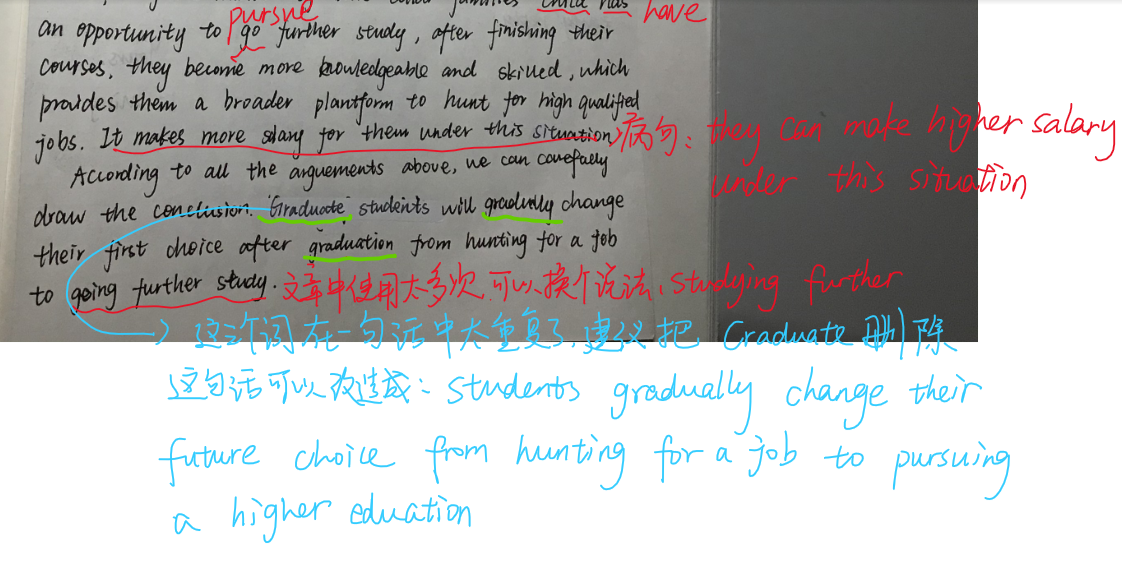 child has have
pursue
an opportunity to go further study, after finishing their
courses, they become more knowledgeable and skilled, which
provides them a broader plantform to hunt for high qualified
jobs. It makes more salary for them under this situation, 病句: they can make higher salary
under this situation
According to all the arguements above, we can carefully
draw the conclusion. Graduate students will gradually change
their first choice after graduation from hunting for a job
to going further study. 文章中使用太多次,可以换个说法, studying further
这个词在一句话中太重复了,建议把 Graduate 删除
这句话可以改造成: students gradually change their
future choice from hunting for a job to pursuing
a higher eduation